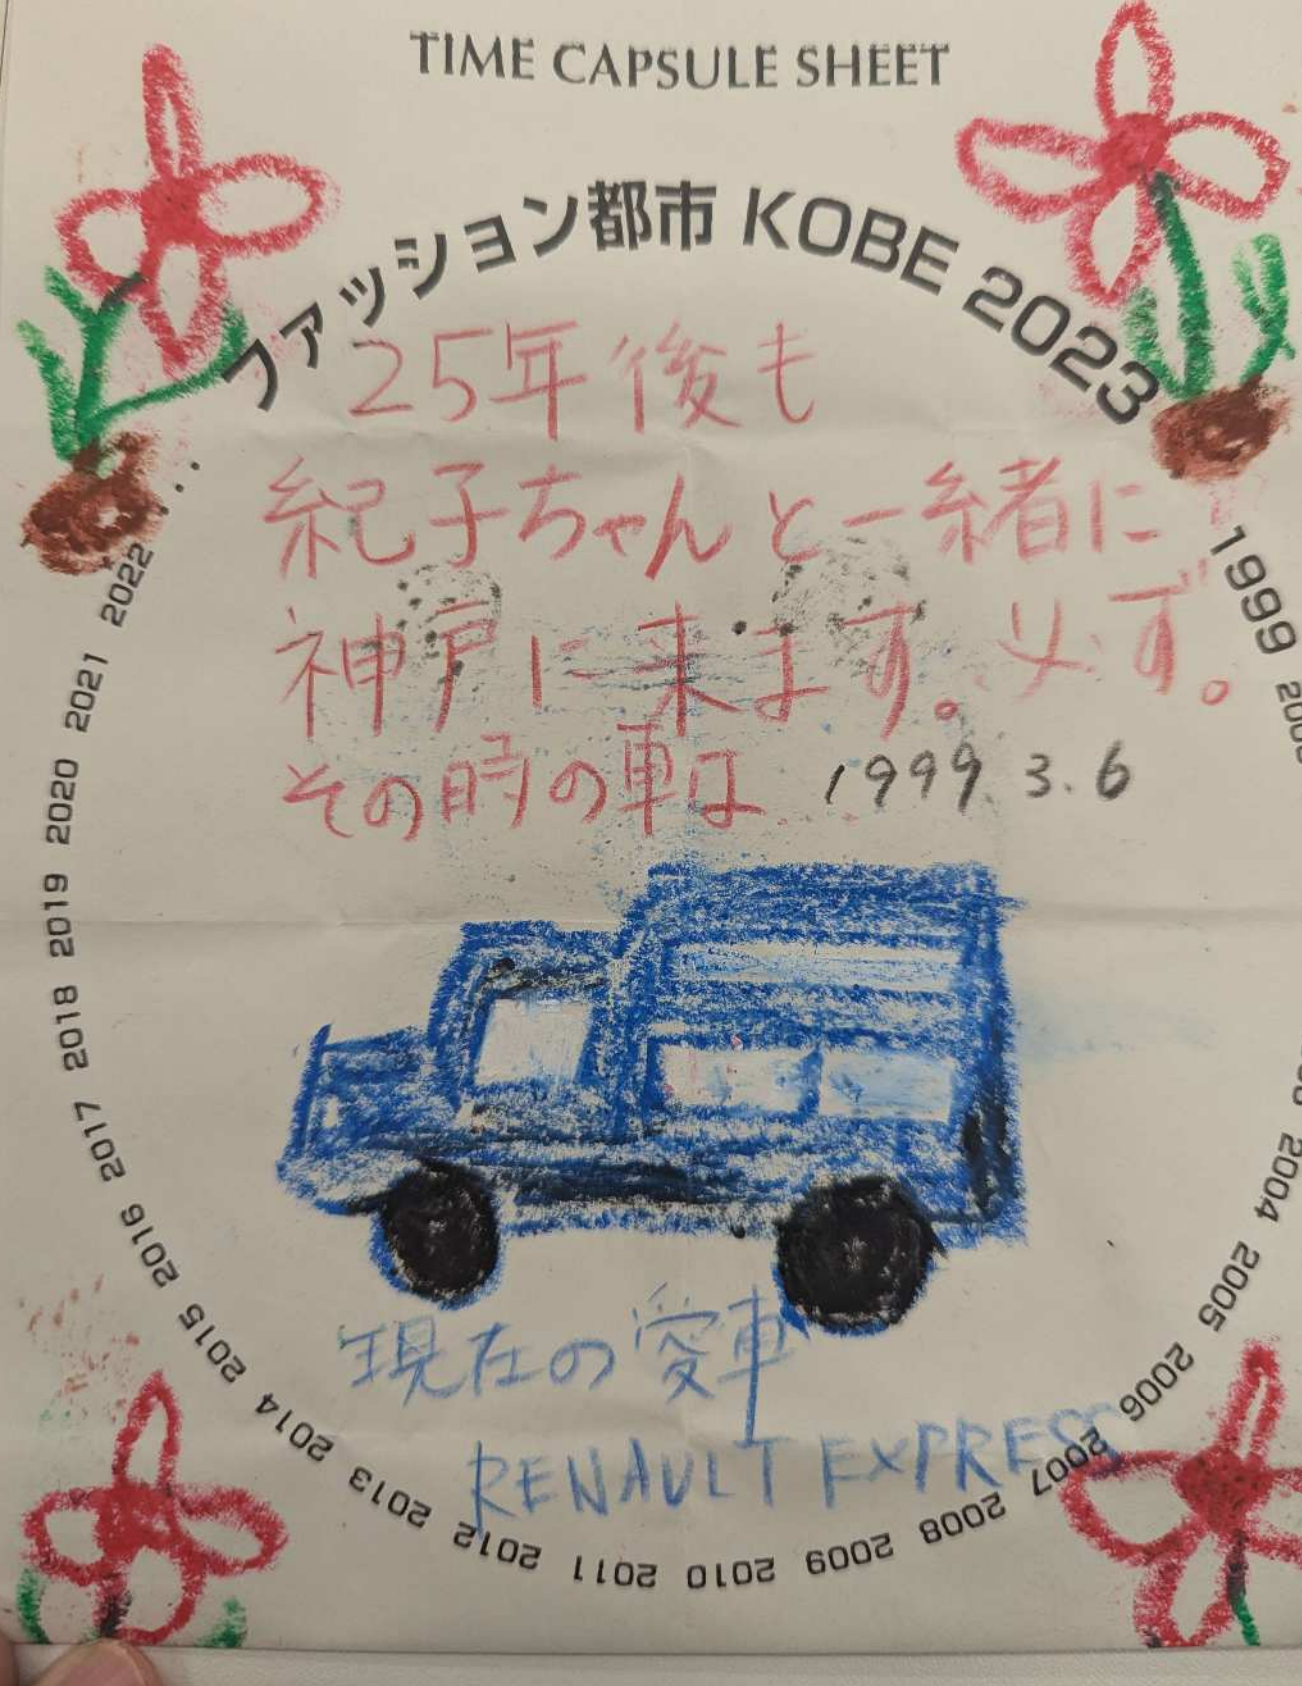 TIME CAPSULE SHEET
ファッション都市 KOBE 2023
25年後も
紀子ちゃんと一緒に
神戸に来ます。必ず。
その時の車は 1999.3.6
現在の愛車
RENAULT EXPRESS
1999
2004
2005
2006
2007
2008
2009
2010
2011
2012
2013
2014
2015
2016
2017
2018
2019
2020
2021
2022